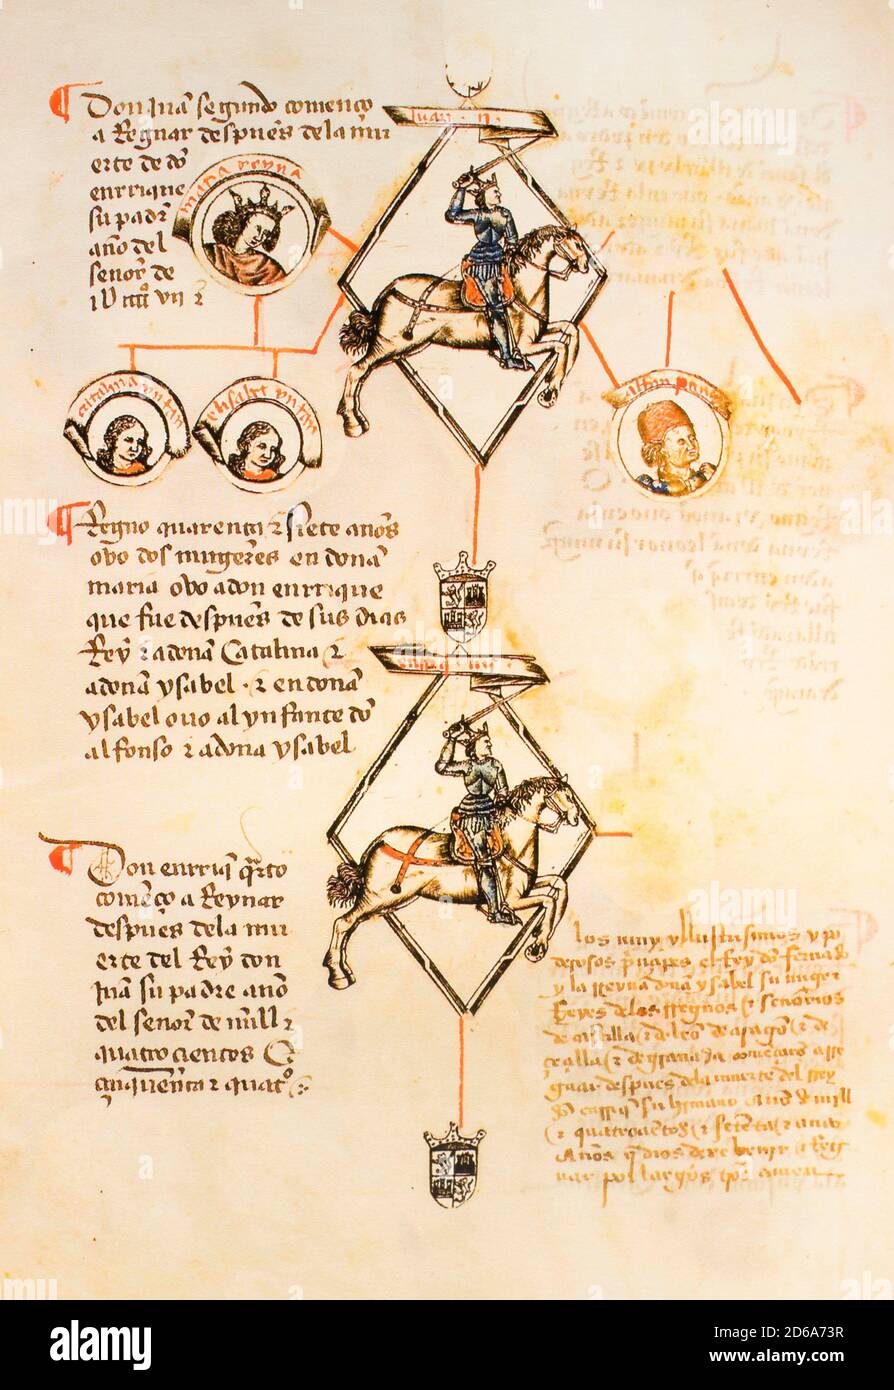 Don Juan segundo començo
a Regnar despues dela mu
erte de do
enrrique
su padre
año del
señor de
maria reyna
Juan · II ·
catalina ynfan
elisabet ynfan
alfon
Regno quarenta & siete años
ovo dos mugeres en dona
maria ovo a don enrrique
que fue despues de sus dias
Rey & a dona Catalina &
a dona ysabel · & en dona
ysabel ovo al ynfante do
alfonso & a dona ysabel
Don enrriq qrto
començo a Reynar
despues dela mu
erte del Rey don
Juan su padre año
del señor de mill &
quatrocientos &
çinquenta & quatro
los muy yllustrisimos y po
derosos prinçipes el Rey do fernado
y la Reyna dona ysabel su muger
Reyes de los Regnos & señorios
de castilla & de leo de aragon & de
çeçilia & de granada començaro a Re
gnar despues dela muerte del Rey
do enrriq su hermano Año de mill
& quatroçientos & setenta & 
Años q dios dexe benir & Reg
nar por largos tpos amen
alamy stock photo
alamy
Image ID: 2D6A73R
www.alamy.com